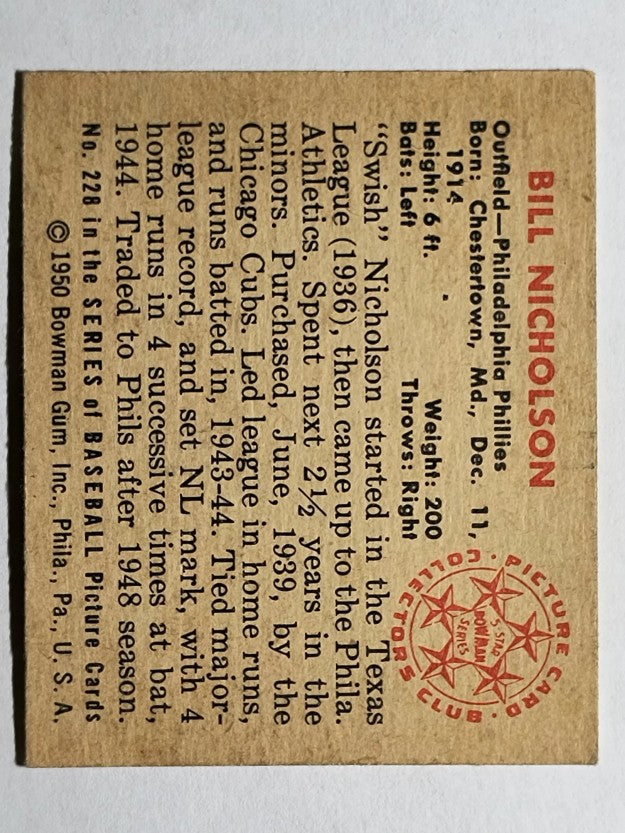 BILL NICHOLSON
Outfield—Philadelphia Phillies
Born: Chestertown, Md., Dec. 11,
1914
Height: 6 ft. Weight: 200
Bats: Left Throws: Right
PICTURE CARD
COLLECTORS CLUB
5-STAR
BOWMAN
SERIES
"Swish" Nicholson started in the Texas
League (1936), then came up to the Phila.
Athletics. Spent next 2½ years in the
minors. Purchased, June, 1939, by the
Chicago Cubs. Led league in home runs,
and runs batted in, 1943-44. Tied major-
league record, and set NL mark, with 4
home runs in 4 successive times at bat,
1944. Traded to Phils after 1948 season.
No. 228 in the SERIES of BASEBALL Picture Cards
© 1950 Bowman Gum, Inc., Phila., Pa., U. S. A.